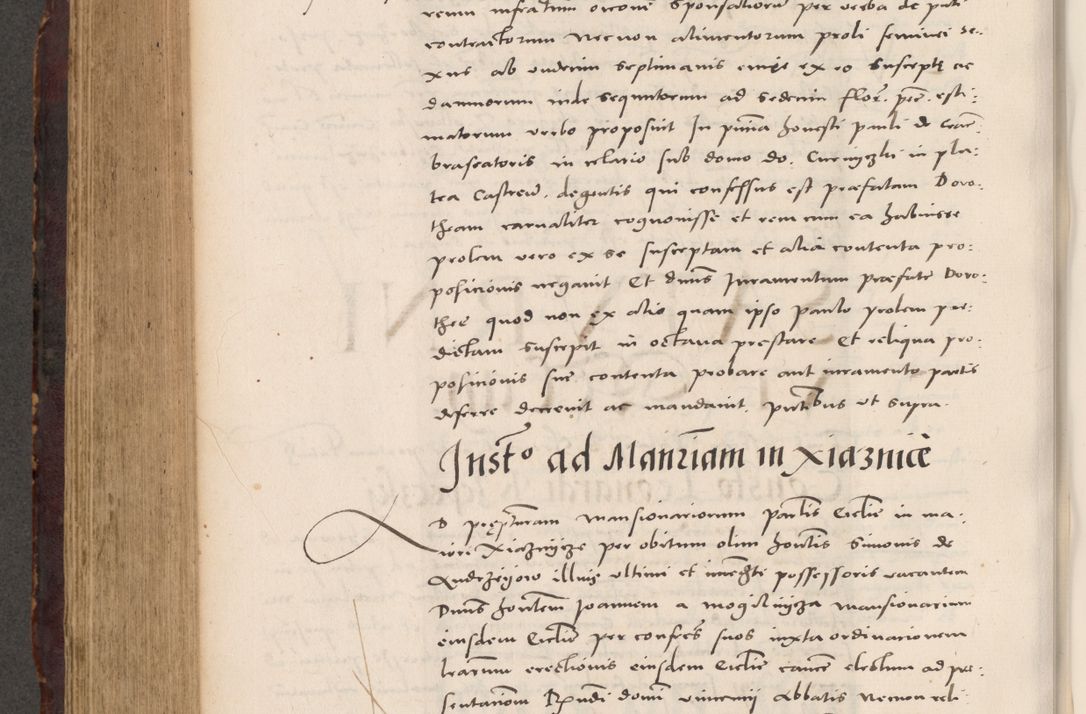 rerum infrascriptum occone sponsaliorum per verba de pnti
contractorum necnon alimentorum proli feminei se-
xus ab undecim septimanis cuiuse ex eo suscepte ac
damnorum inde sequutorum ad sedecim flor. pec. esti:
matorum verbo proposuit In pntia honesti pauli de
braseatoris in celario sub domo do. Curnyczki in pla:
tea Castren. degentis qui confessus est praefatam Doro:
theam carnaliter cognouisse et rem cum ea habuisse
prolem vero ex se susceptam et alia contenta pro:
posicionis negauit Et dnus Juramentum praefate Doro:
thee quod non ex alio quam ipso paulo prolem pre:
dictam suscepit in octaua prestare Et reliqua pro:
posicionis sue contenta probare aut iuramento partis
deferre decreuit ac mandauit. pntibus ut supra.
Insto ad Manriam in Xiaznice
D pręptram mansionariorum partis Ecclie in ma:
iore Xiaznycze per obitum olim hontis Simonis de
Andrzeyow illius ultimi et immedte possessoris vacantem
Dnus hontem Joannem a mogilnycza mansionarium
eiusdem Ecclie per confres suos iuxta ordinacionem
lrarum erectionis eiusdem Ecclie canice electum ad pre:
sentationem Rndi domi vincencii Abbatis necnon reli: